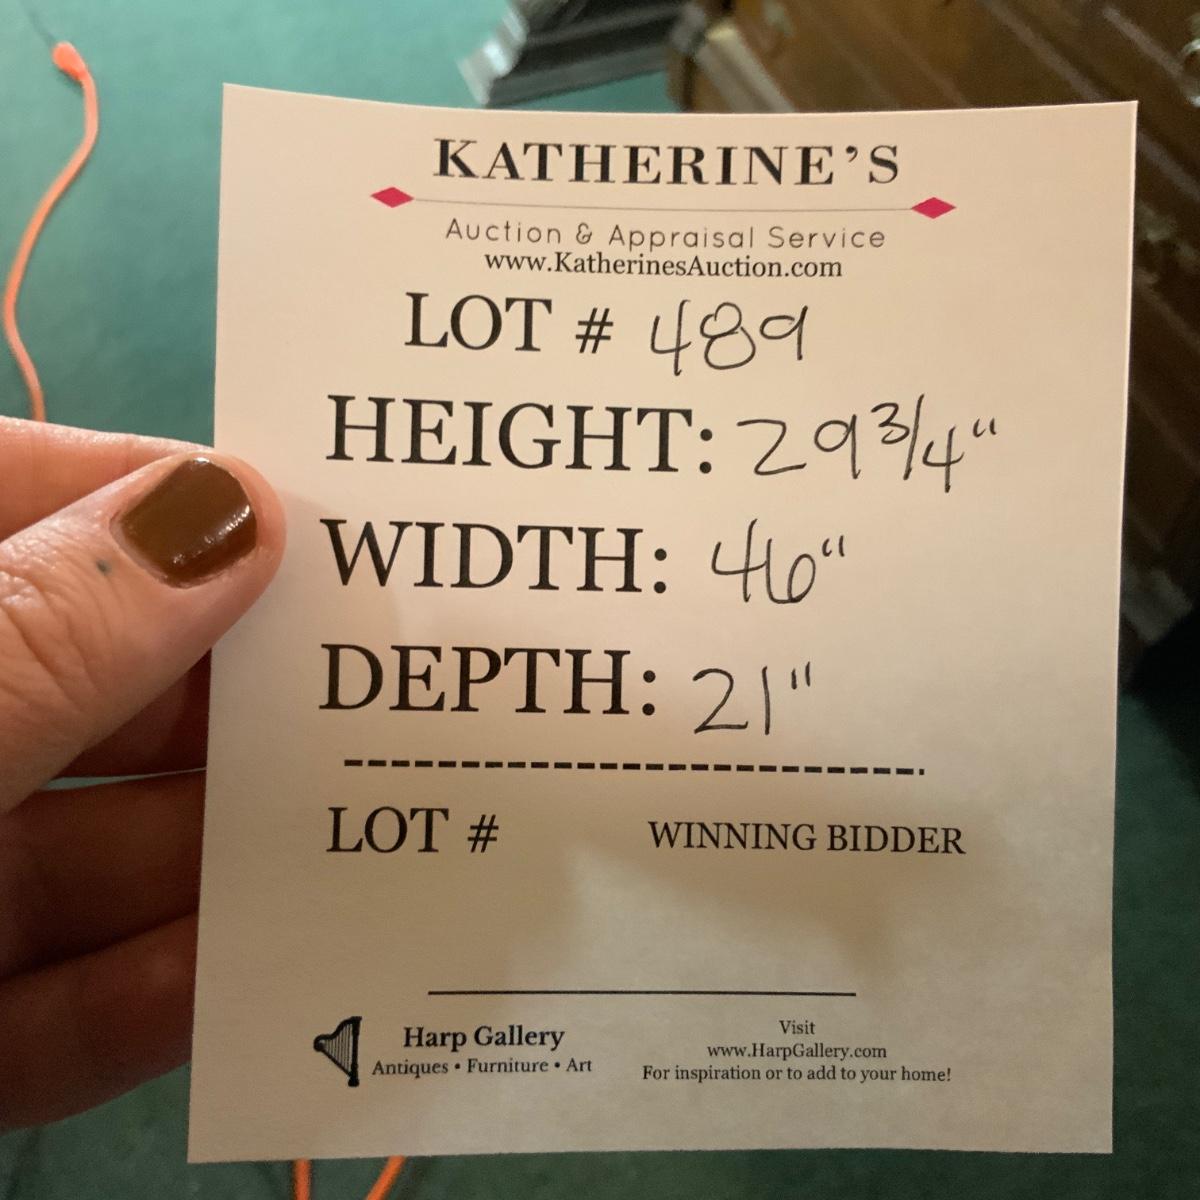 KATHERINE'S
Auction & Appraisal Service
www.KatherinesAuction.com
LOT # 489
HEIGHT: 29 3/4"
WIDTH: 46"
DEPTH: 21"
LOT # WINNING BIDDER
Harp Gallery
Antiques • Furniture • Art
Visit
www.HarpGallery.com
For inspiration or to add to your home!